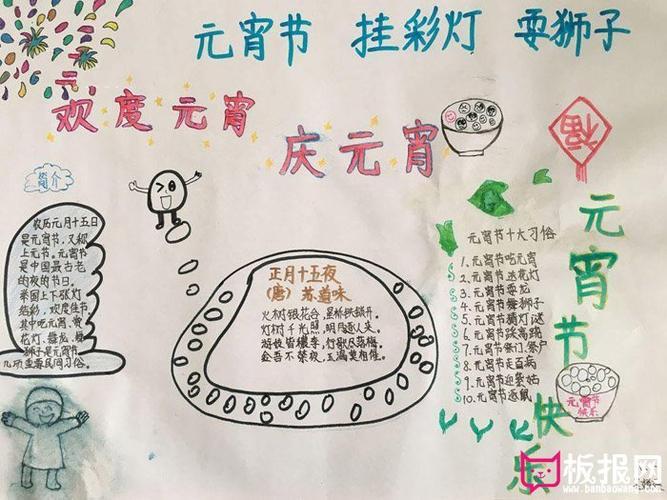 元宵节 挂彩灯 耍狮子
欢度元宵
庆元宵
简介
农历元月十五日
是元宵节，又称
上元节。元宵节
是中国最古老
的夜的节日。
举国上下张灯
结彩，欢度佳节。
其中吃元宵，赏
花灯，舞龙，舞
狮子是元宵节
几项重要民间习俗。
正月十五夜
（唐）苏道味
火树银花合，星桥铁锁开。
灯树千光照，明月逐人来。
游伎皆秾李，行歌尽落梅。
金吾不禁夜，玉漏莫相催。
元宵节十大习俗
1.元宵节吃元宵
2.元宵节送花灯
3.元宵节耍龙
4.元宵节舞狮子
5.元宵节猜灯谜
6.元宵节踩高跷
7.元宵节祭门、祭户
8.元宵节走百病
9.元宵节迎紫姑
10.元宵节逐鼠
福
元宵节快乐
元宵节
快乐
板报网
www.banbaowang.com